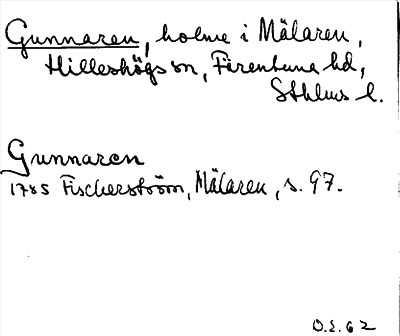 Gunnaren, holme i Mälaren,
Hilleshögs sn, Färentuna hd,
Sthlms l.
Gunnaren
1785 Fischerström, Mälaren, s. 97.
O.E. 62